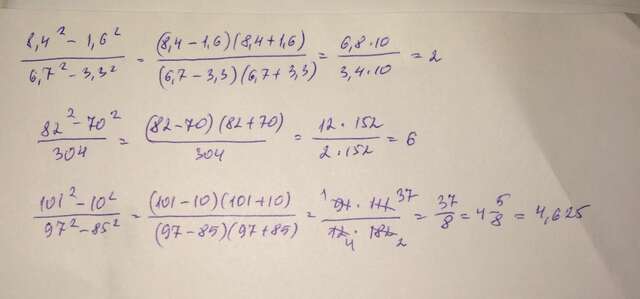 (8,4² - 1,6²)/(6,7² - 3,3²) = ((8,4 - 1,6)(8,4 + 1,6))/((6,7 - 3,3)(6,7 + 3,3)) = (6,8 · 10)/(3,4 · 10) = 2
(82² - 70²)/304 = ((82 - 70)(82 + 70))/304 = (12 · 152)/(2 · 152) = 6
(101² - 10²)/(97² - 85²) = ((101 - 10)(101 + 10))/((97 - 85)(97 + 85)) = (¹91 · 111 ³⁷)/(12₄ · 182₂) = 37/8 = 4 5/8 = 4,625